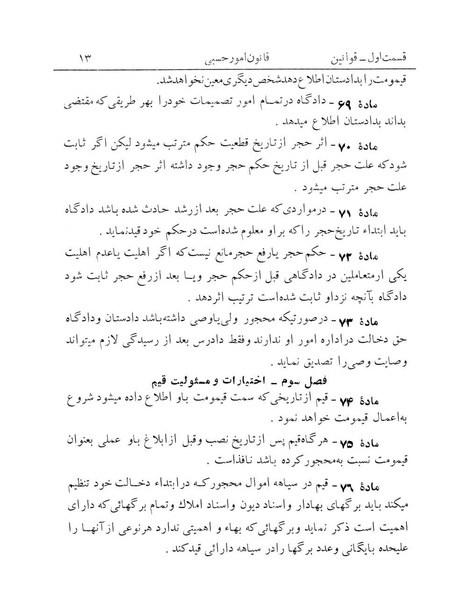 قسمت اول ــ قوانین قانون امور حسبی ۱۳
قیمومت را بدادستان اطلاع دهد شخص دیگری معین نخواهد شد.
مادهٔ ۶۹ - دادگاه در تمام امور تصمیمات خود را بهر طریقی که مقتضی
بداند بدادستان اطلاع میدهد .
مادهٔ ۷۰ - اثر حجر از تاریخ قطعیت حکم مترتب میشود لیکن اگر ثابت
شود که علت حجر قبل از تاریخ حکم حجر وجود داشته اثر حجر از تاریخ وجود
علت حجر مترتب میشود .
مادهٔ ۷۱ - در مواردی که علت حجر بعد از رشد حادث شده باشد دادگاه
باید ابتداء تاریخ حجر را که بر او معلوم شده است در حکم خود قید نماید .
مادهٔ ۷۲ - حکم حجر یا رفع حجر مانع نیست که اگر اهلیت یا عدم اهلیت
یکی از متعاملین در دادگاهی قبل از حکم حجر ویا بعد از رفع حجر ثابت شود
دادگاه بآنچه نزد او ثابت شده است ترتیب اثر دهد .
مادهٔ ۷۳ - در صورتیکه محجور ولی یا وصی داشته باشد دادستان و دادگاه
حق دخالت در اداره امور او ندارند و فقط دادرس بعد از رسیدگی لازم میتواند
وصایت وصی را تصدیق نماید .
فصل سوم ــ اختیارات و مسئولیت قیم
مادهٔ ۷۴ - قیم از تاریخی که سمت قیمومت باو اطلاع داده میشود شروع
به اعمال قیمومت خواهد نمود .
مادهٔ ۷۵ - هرگاه قیم پس از تاریخ نصب و قبل از ابلاغ باو عملی بعنوان
قیمومت نسبت به محجور کرده باشد نافذ است .
مادهٔ ۷۶ - قیم در سیاهه اموال محجور که در ابتداء دخالت خود تنظیم
میکند باید برگهای بهادار و اسناد دیون و اسناد املاک و تمام برگهائی که دارای
اهمیت است ذکر نماید و برگهائی که بهاء و اهمیتی ندارد هر نوعی از آنها را
علیحده بایگانی و عدد برگها را در سیاهه دارائی قید کند .